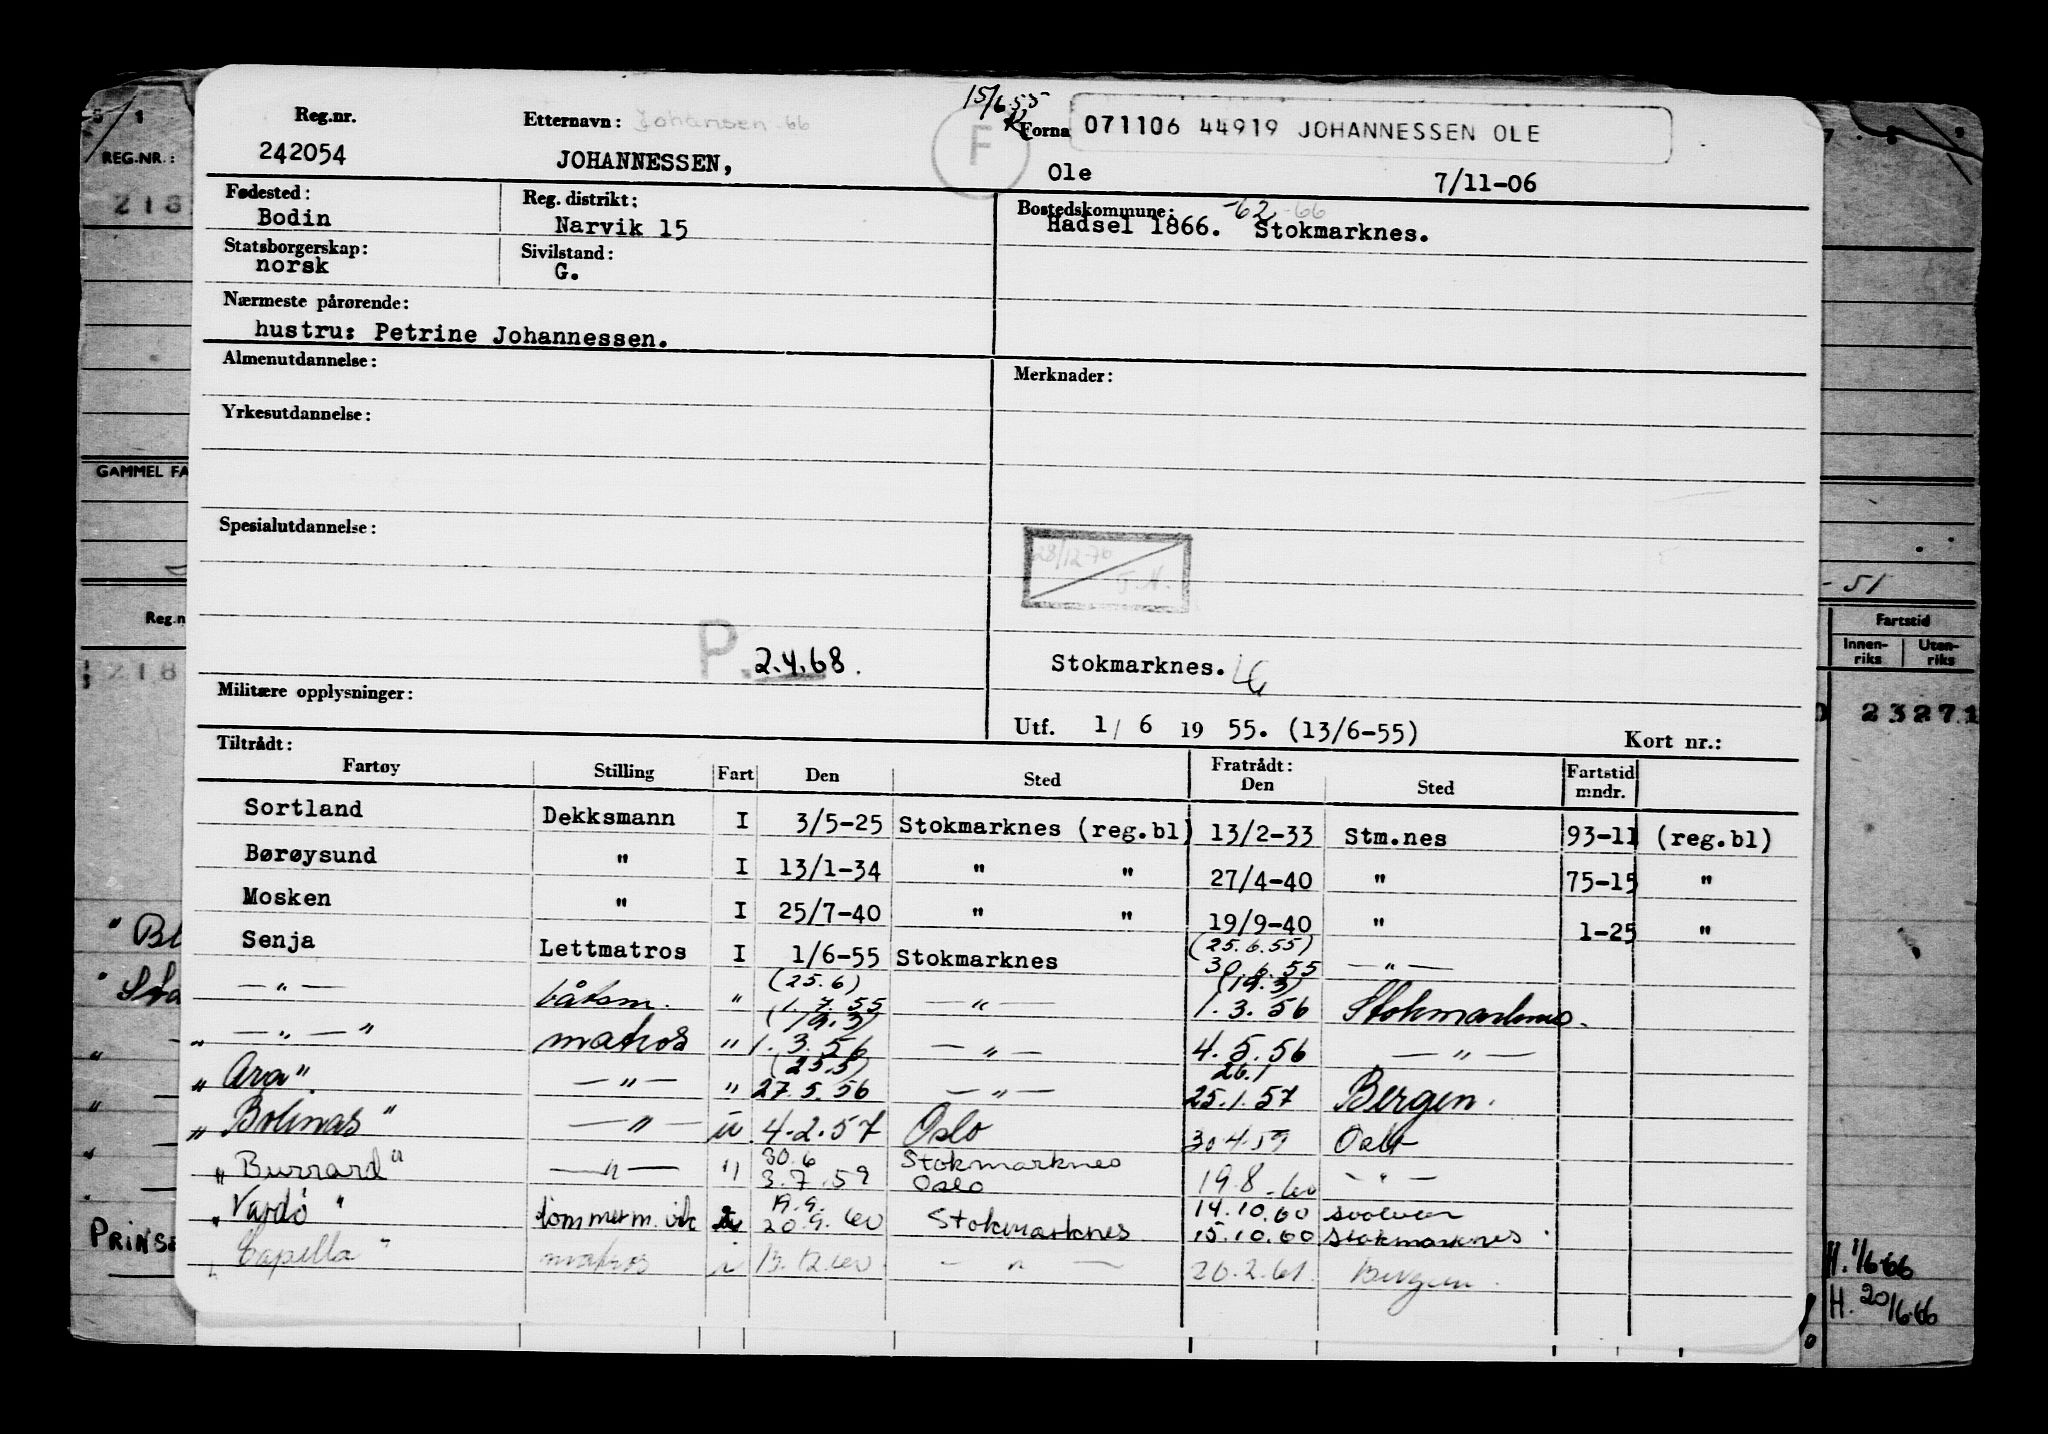 15/6.55
Reg.nr. Etternavn: Johansen 66 F Forna 071106 44919 JOHANNESSEN OLE
242054 JOHANNESSEN, Ole 7/11-06
Fødested: Reg. distrikt: Bostedskommune: -62 -66
Bodin Narvik 15 Hadsel 1866. Stokmarknes.
Statsborgerskap: Sivilstand:
norsk G.
Nærmeste pårørende:
hustru: Petrine Johannessen.
Almenutdannelse: Merknader:
Yrkesutdannelse:
Spesialutdannelse:
28/12-76
T.H.
P. 2.4.68. Stokmarknes.
Militære opplysninger:
Utf. 1/ 6 19 55. (13/6-55) Kort nr.:
Tiltrådt: Fratrådt:
Fartøy Stilling Fart Den Sted Den Sted Fartstid mndr.
Sortland Dekksmann I 3/5-25 Stokmarknes (reg.bl) 13/2-33 Stm.nes 93-11 (reg.bl)
Børøysund " I 13/1-34 " " 27/4-40 " 75-15 "
Mosken " I 25/7-40 " " 19/9-40 " 1-25 "
Senja Lettmatros I 1/6-55 Stokmarknes (25.6.55) 30.6.55 — " —
— " — båtsm. " (25.6) 1.7.55 — " — (19.3) 1.3.56 Stokmarknes.
" — " — " matros " (19.3) 1.3.56 — " — 4.5.56 — " —
" Ara" — " — " (25.5) 27.5.56 — " — 26.1 25.1.57 Bergen.
" Bolinas" — " — u 4.2.57 Oslo 30.4.59 Oslo
" Burrard" — " — " 30.6 3.7.59 Stokmarknes Oslo 19.8.60 — " —
" Vardø" tömmerm. vik 19.9. 20.9.60 Stokmarknes 14.10.60 Svolvær 15.10.60 Stokmarknes.
" Capella" matros i 13.12.60 — " — 20.2.61. Bergen.
REG.NR.:
218
GAMMEL FA
Reg.n
218
PRINSE
- 51
Fartstid
Innen-riks Uten-riks
23271
H. 1/6-66
H. 20/6-66